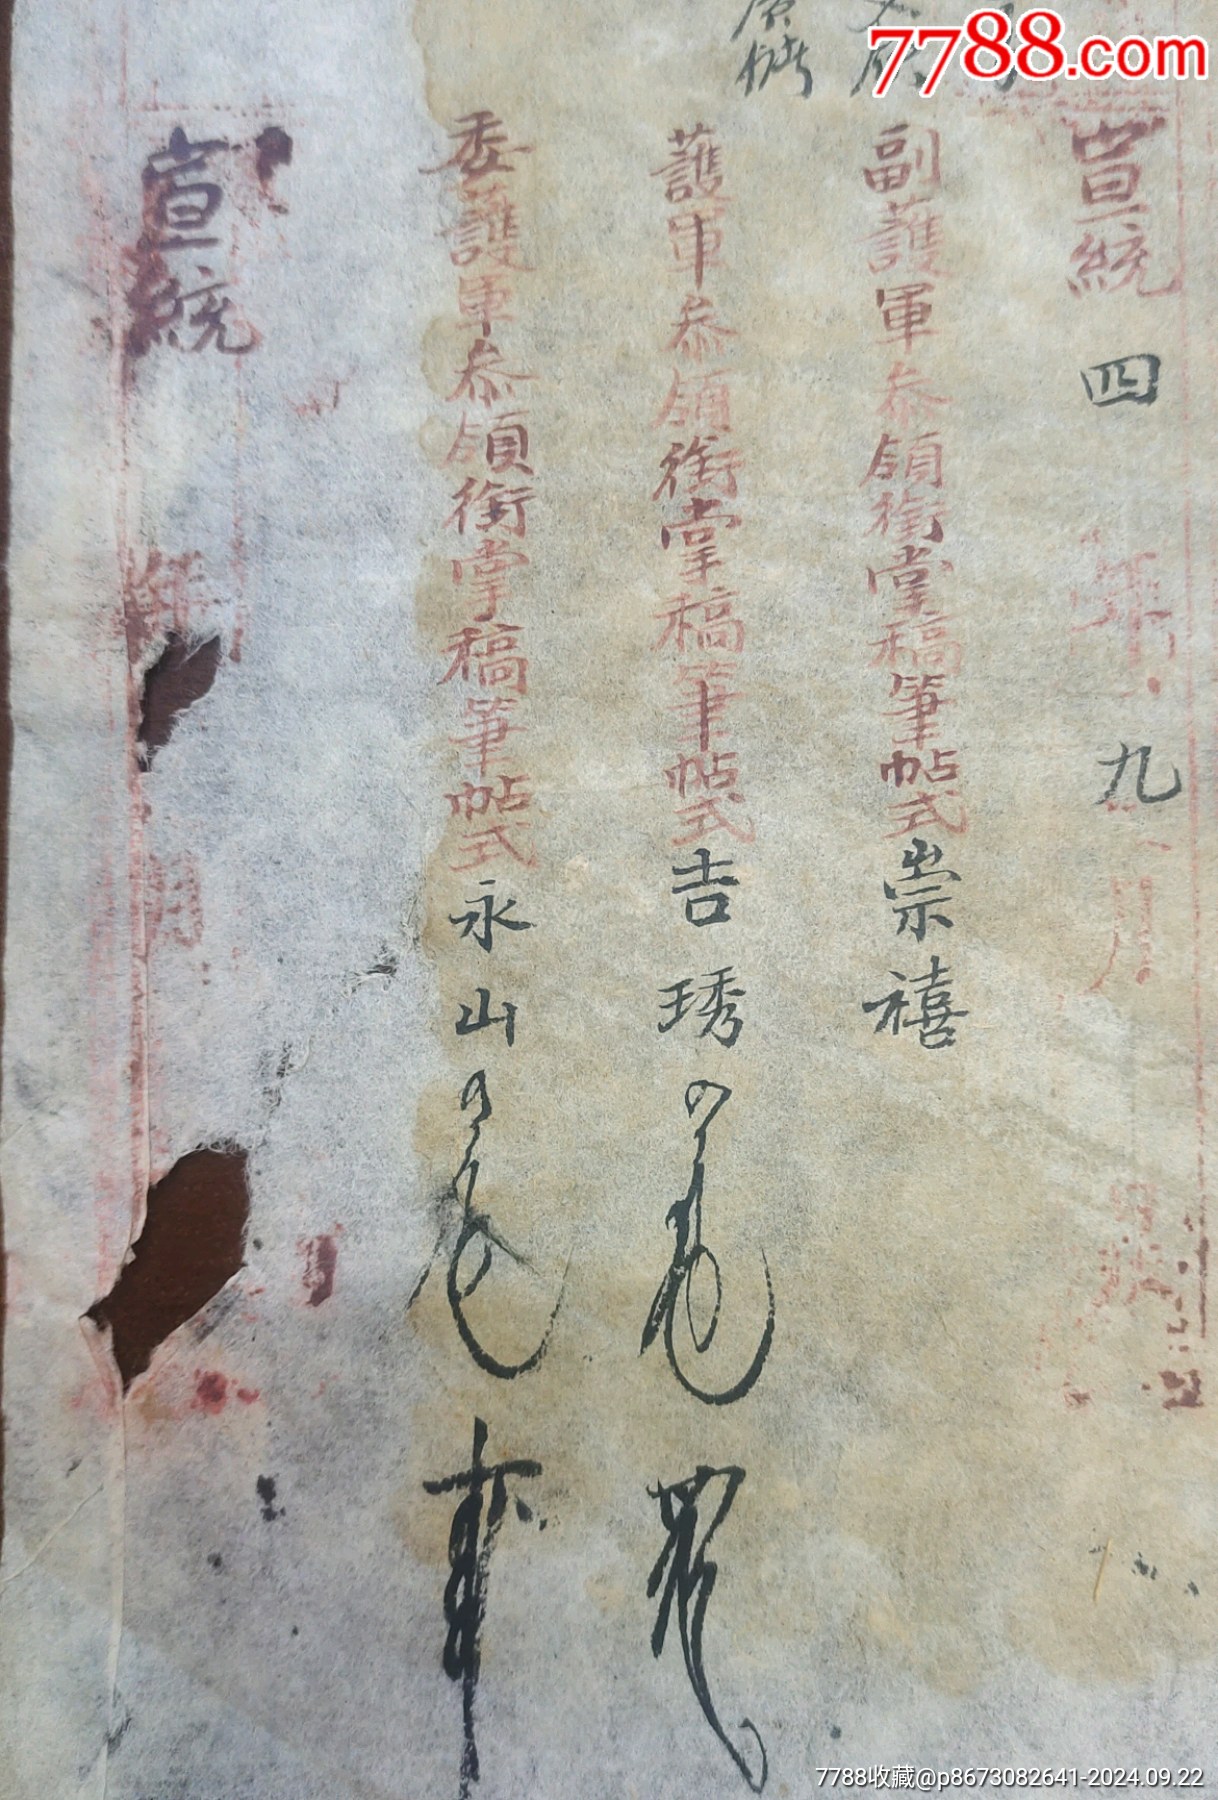 7788.com
宣統四年九月
副護軍參領銜掌稿筆帖式崇禧
護軍參領銜掌稿筆帖式吉琇
委護軍參領銜掌稿筆帖式永山
宣統 年 月
7788收藏@p8673082641-2024.09.22